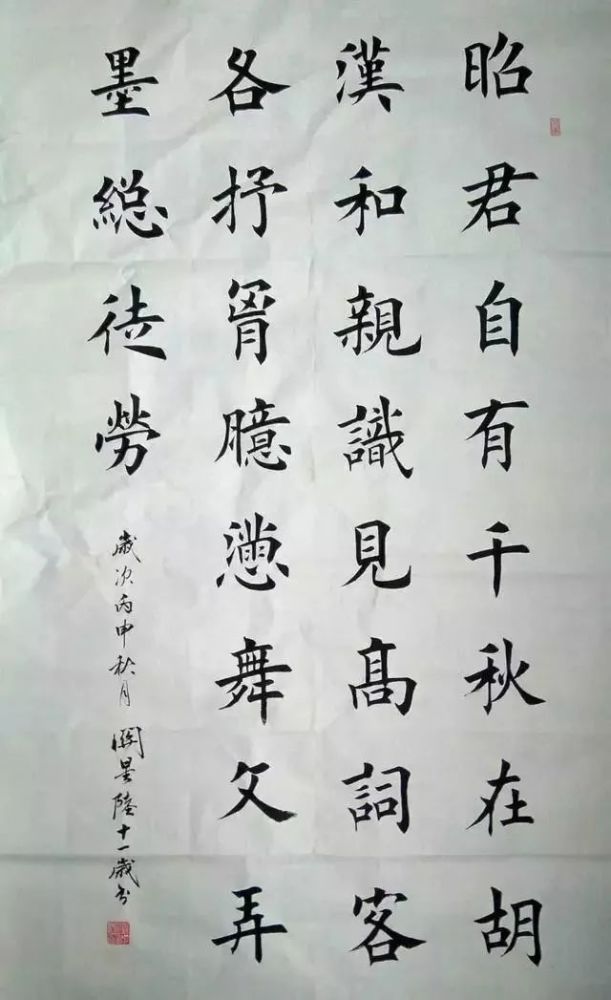 昭君自有千秋在胡
漢和親識見髙詞客
各抒胷臆懣舞文弄
墨緫徒勞
歲次丙申秋月
十一歲書